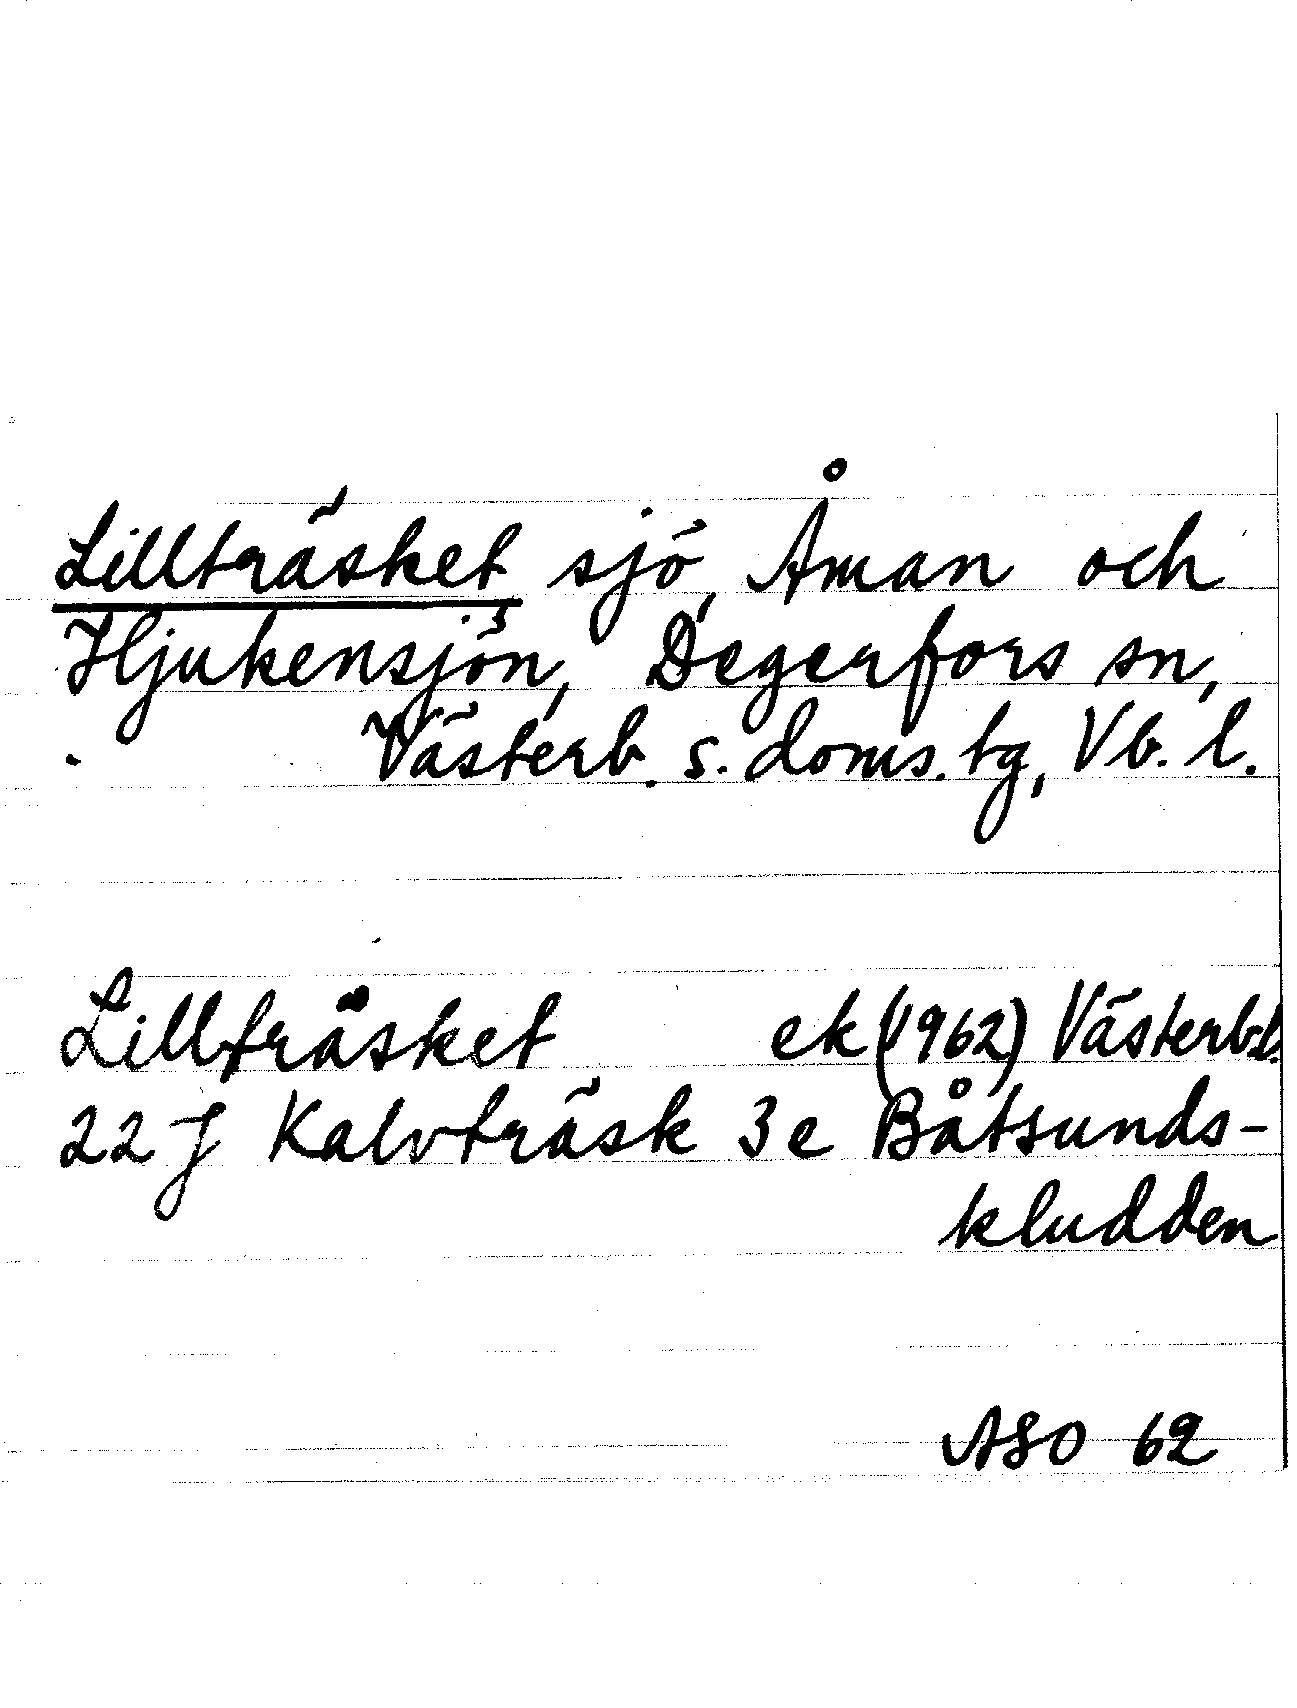 Lillträsket sjö, Åman och
Hjukensjön, Degerfors sn,
Västerb. s. doms. tg, Vb. l.
Lillträsket ek (1962) Västerb.l.
22 J Kalvträsk 3 e Båtsunds-
kludden
ASO 62